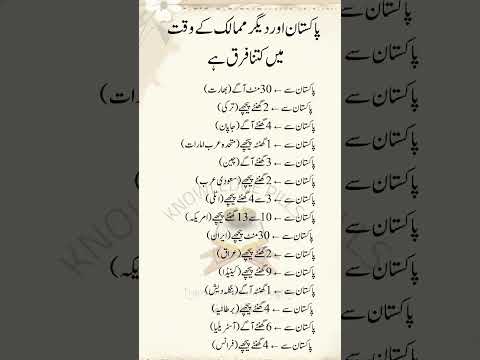 پاکستان اور دیگر ممالک کے وقت
میں کتنا فرق ہے
پاکستان سے ← 30 منٹ آگے (بھارت)
پاکستان سے ← 2 گھنٹے پیچھے (ترکی)
پاکستان سے ← 4 گھنٹے آگے (جاپان)
پاکستان سے ← 1 گھنٹہ پیچھے (متحدہ عرب امارات)
پاکستان سے ← 3 گھنٹے آگے (چین)
پاکستان سے ← 2 گھنٹے پیچھے (سعودی عرب)
پاکستان سے ← 3 سے 4 گھنٹے پیچھے (اٹلی)
پاکستان سے ← 10 سے 13 گھنٹے پیچھے (امریکہ)
پاکستان سے ← 30 منٹ پیچھے (ایران)
پاکستان سے ← 2 گھنٹے پیچھے (عراق)
پاکستان سے ← 9 گھنٹے پیچھے (کینیڈا)
پاکستان سے ← 1 گھنٹہ آگے (بنگلہ دیش)
پاکستان سے ← 4 گھنٹے پیچھے (برطانیہ)
پاکستان سے ← 6 گھنٹے آگے (آسٹریلیا)
پاکستان سے ← 4 گھنٹے پیچھے (فرانس)